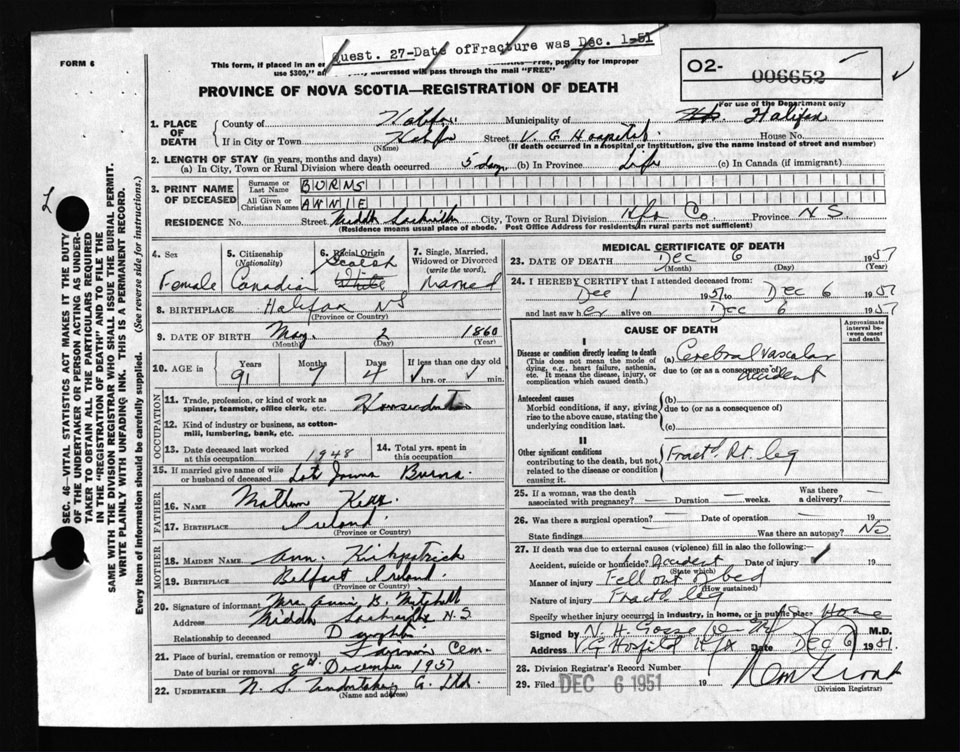 Quest. 27-Date ofFracture was Dec. 1-51
FORM 6
This form, if placed in an en
penalty for improper
use $300," an
addressed will pass through the mail "FREE"
O2- 006652
PROVINCE OF NOVA SCOTIA—REGISTRATION OF DEATH
For use of the Department only
1. PLACE OF DEATH
County of Halifax Municipality of Halifax
If in City or Town Street V. G Hospital House No.
(Name) (If death occurred in a hospital or institution, give the name instead of street and number)
2. LENGTH OF STAY (in years, months and days)
(a) In City, Town or Rural Division where death occurred 5 days (b) In Province Life (c) In Canada (if immigrant)
3. PRINT NAME OF DECEASED
Surname or Last Name BURNS
All Given or Christian Names ANNIE
RESIDENCE No. Street Middle Sackville City, Town or Rural Division Hfx Co Province N S
(Residence means usual place of abode. Post Office Address for residents in rural parts not sufficient)
4. Sex Female
5. Citizenship (Nationality) Canadian
6. Racial Origin Scotch White
7. Single, Married, Widowed or Divorced (write the word) Married
8. BIRTHPLACE Halifax NS
(Province or Country)
9. DATE OF BIRTH May 2 1860
(Month) (Day) (Year)
10. AGE in Years 91 Months 7 Days 4 If less than one day old hrs. or min.
OCCUPATION
11. Trade, profession, or kind of work as spinner, teamster, office clerk, etc.
12. Kind of industry or business, as cotton-mill, lumbering, bank, etc.
13. Date deceased last worked at this occupation 1948
14. Total yrs. spent in this occupation
15. If married give name of wife or husband of deceased Burns
FATHER
16. NAME
17. BIRTHPLACE Ireland
(Province or Country)
MOTHER
18. MAIDEN NAME Ann Kirkpatrick
19. BIRTHPLACE Belfast Ireland
(Province or Country)
20. Signature of informant Mrs Annie B. Mitchell
Address Middle Sackville N.S.
Relationship to deceased Daughter
21. Place of burial, cremation or removal Fairview Cem-
Date of burial or removal 8th December 1951
22. UNDERTAKER N. S. Undertaking Co. Ltd.
(Name and address)
MEDICAL CERTIFICATE OF DEATH
23. DATE OF DEATH Dec 6 1951
(Month) (Day) (Year)
24. I HEREBY CERTIFY that I attended deceased from:
Dec 1 1951 to Dec 6 1951
and last saw her alive on Dec 6 1951
CAUSE OF DEATH
Approximate interval between onset and death
I
Disease or condition directly leading to death
(This does not mean the mode of dying, e.g., heart failure, asthenia, etc. It means the disease, injury, or complication which caused death.)
(a) Cerebral vascular accident
due to (or as a consequence of)
Antecedent causes
Morbid conditions, if any, giving rise to the above cause, stating the underlying condition last.
(b)
due to (or as a consequence of)
(c)
II
Other significant conditions
contributing to the death, but not related to the disease or condition causing it.
Fractd. Rt. leg
25. If a woman, was the death associated with pregnancy? — Duration — weeks. Was there a delivery? —
26. Was there a surgical operation? — Date of operation — 19
State findings Was there an autopsy? No
27. If death was due to external causes (violence) fill in also the following:—
Accident, suicide or homicide? Accident Date of injury 19
(State which)
Manner of injury Fell out of bed
(How sustained)
Nature of injury Fractd leg
Specify whether injury occurred in industry, in home, or in public place Home
Signed by N. H. Gosse M.D.
Address V G Hospital Hfx Date Dec 6 1951
28. Division Registrar's Record Number
29. Filed DEC 6 1951 19
(Division Registrar)
SEC. 46—VITAL STATISTICS ACT MAKES IT THE DUTY
OF THE UNDERTAKER OR PERSON ACTING AS UNDER-
TAKER TO OBTAIN ALL THE PARTICULARS REQUIRED
IN THE "REGISTRATION OF DEATH" AND TO FILE THE
SAME WITH THE DIVISION REGISTRAR WHO SHALL ISSUE THE BURIAL PERMIT.
WRITE PLAINLY WITH UNFADING INK. THIS IS A PERMANENT RECORD.
Every item of information should be carefully supplied. (See reverse side for instructions.)